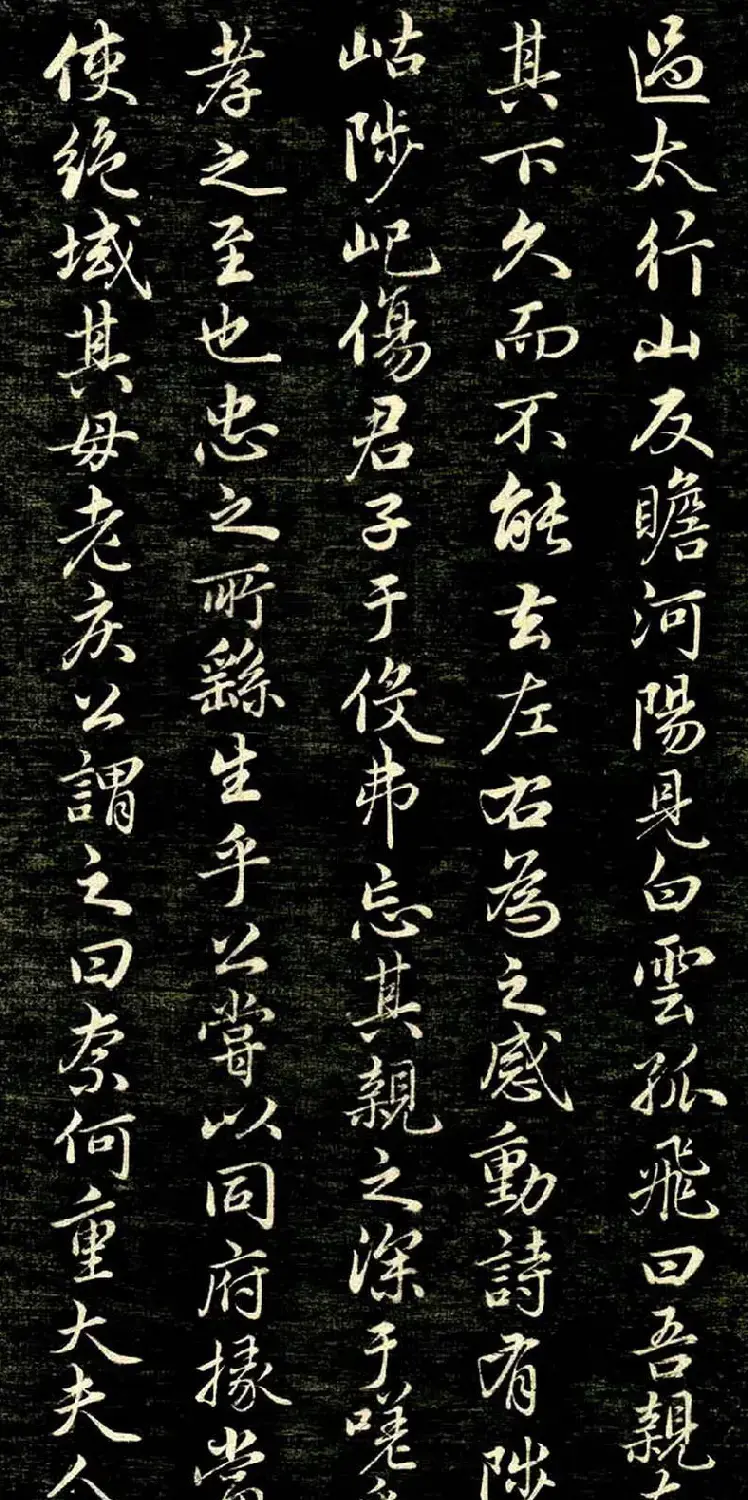 過太行山反瞻河陽見白雲孤飛曰吾親
其下久而不能去左右為之感動詩有陟
岵陟屺傷君子于役弗忘其親之深于嗟
孝之至也忠之所繇生乎公嘗以同府掾當
使絕域其母老疾公謂之曰奈何重大夫人